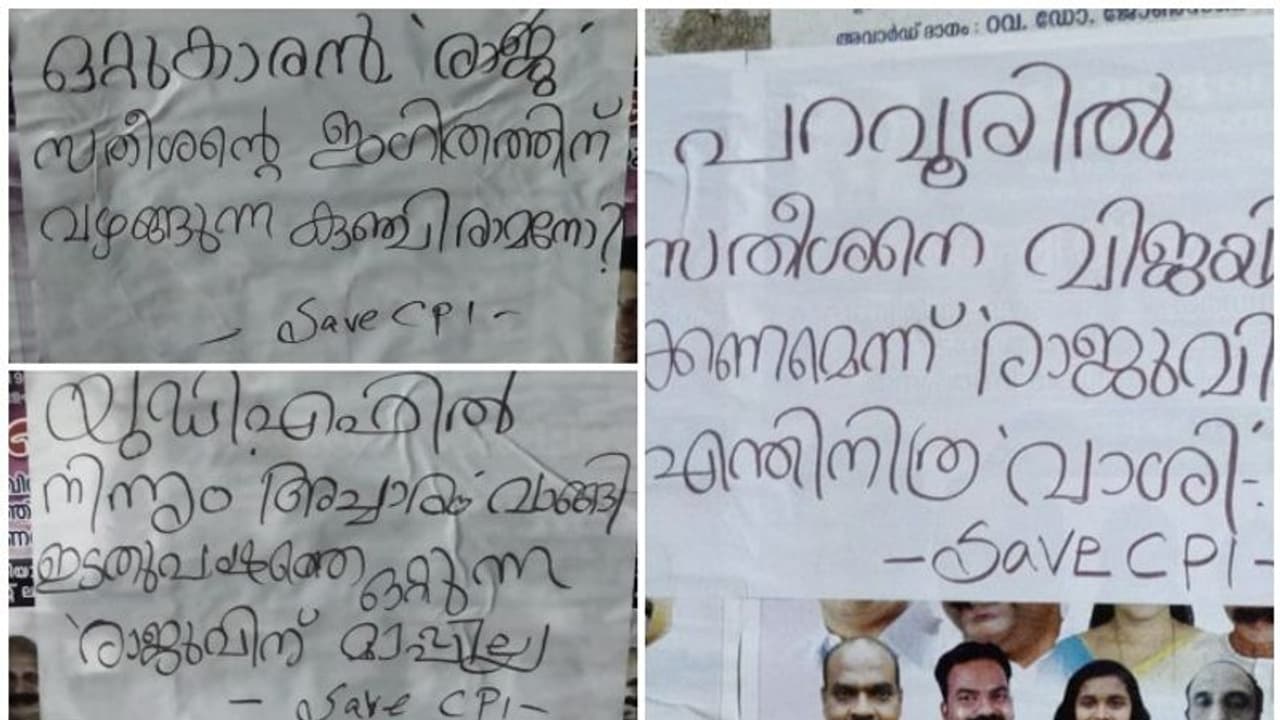 ഒറ്റുകാരൻ രാജു
സതീശൻ്റെ ഇംഗിതത്തിന്
വഴങ്ങുന്ന കുഞ്ചിരാമനോ?
- Save CPI -
യുഡിഎഫിൽ
നിന്നും അച്ചാരം വാങ്ങി
ഇടതുപക്ഷത്തെ ഒറ്റുന്ന
രാജുവിന് മാപ്പില്ല
- Save CPI -
അവാർഡ് ദാനം : റവ. ഡോ.
പറവൂരിൽ
സതീശനെ വിജയി
ക്കണമെന്ന് രാജുവി
എന്തിനിത്ര വാശി
- Save CPI -